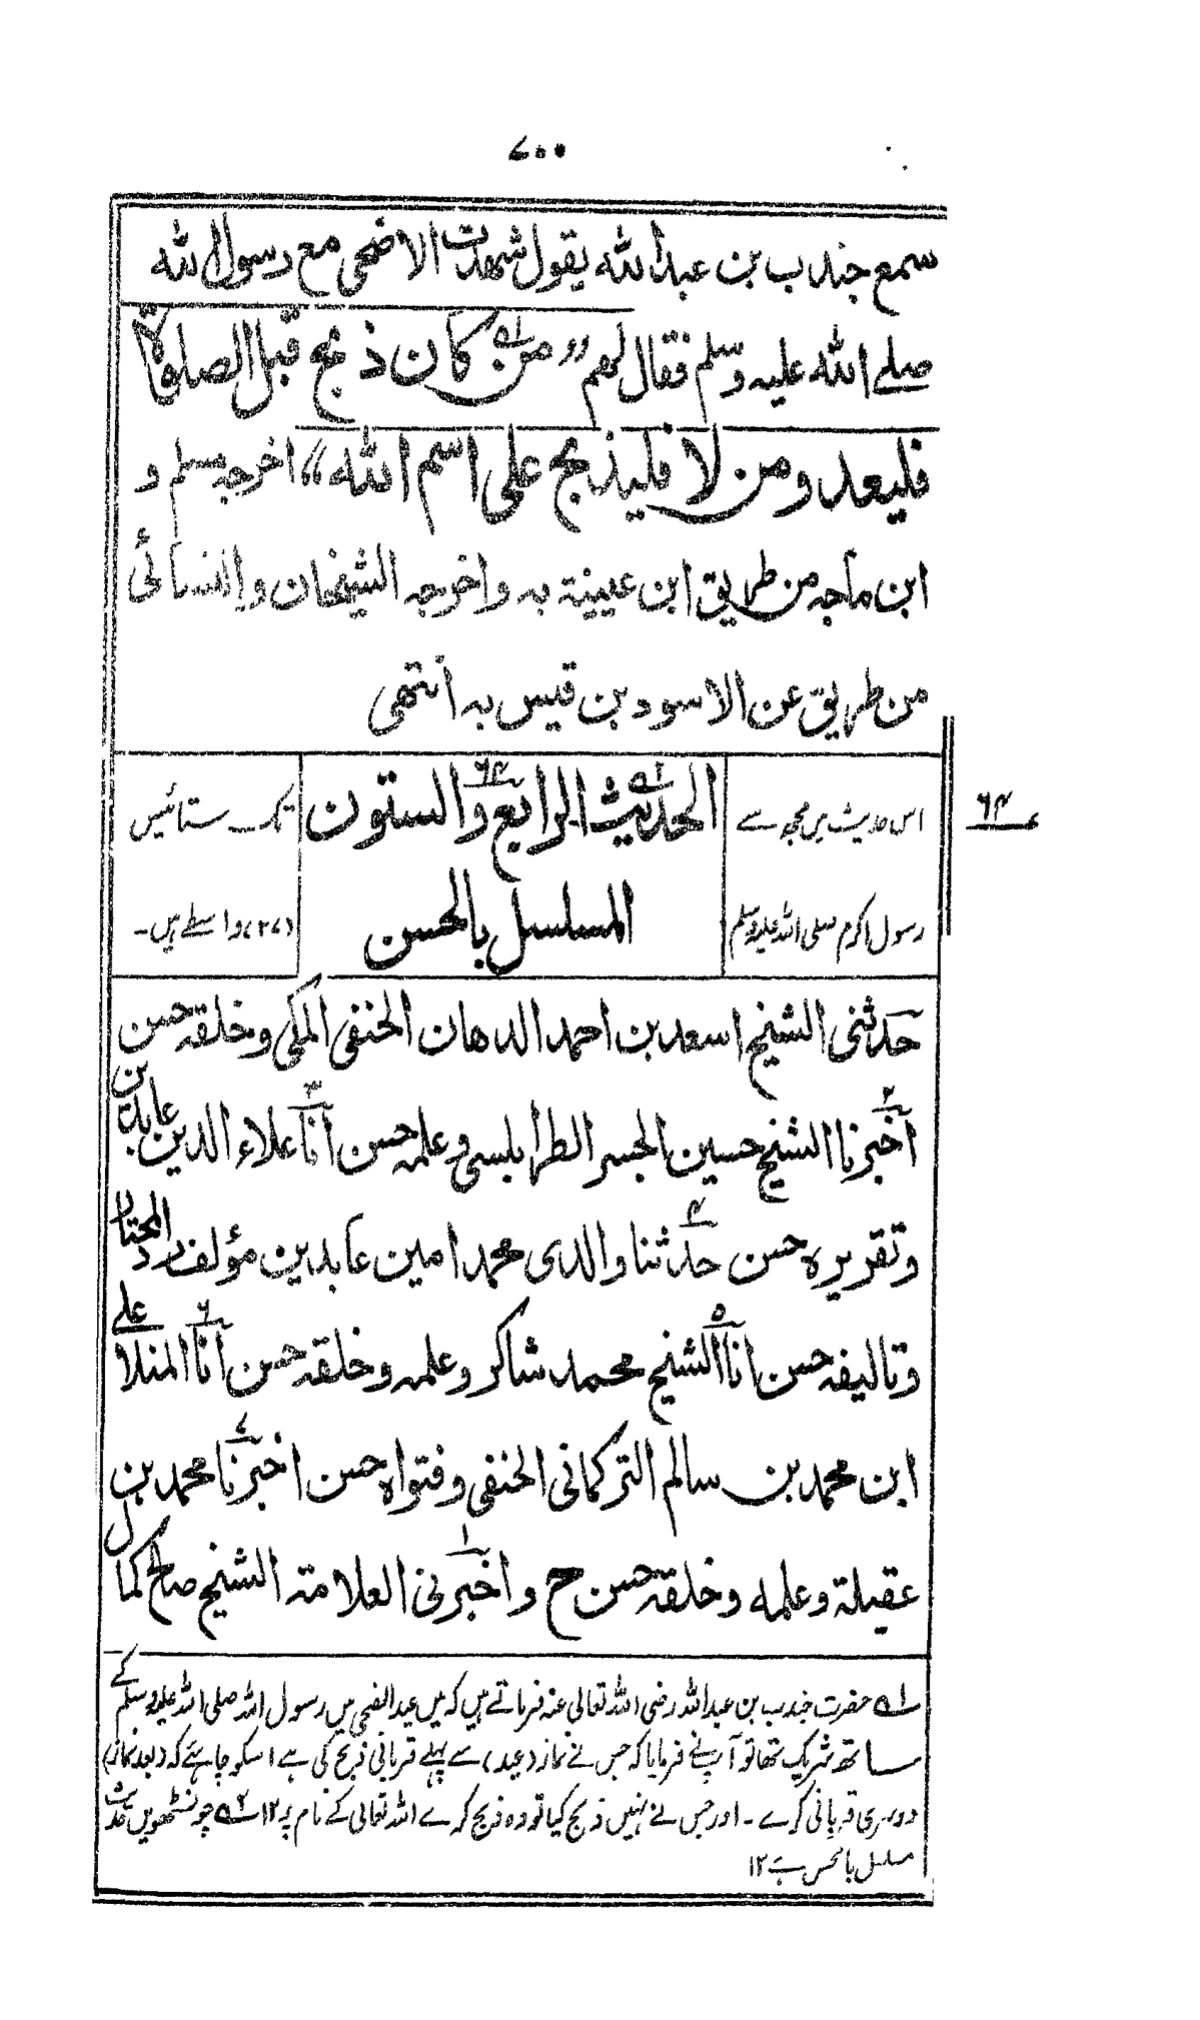 ۷۰۰
سمع جندب بن عبدالله يقول شهدت الاضحى مع رسول الله
صلے الله عليه وسلم فقال لهم ،،من كان ذبح قبل الصلوة
فليعد ومن لا فليذبح على اسم الله،، اخرجه مسلم و
ابن ماجه من طريق ابن عيينة به واخرجه الشيخان والنسائى
من طريق عن الاسود بن قيس به انتهى
۶۴
اس حدیث میں مجھ سے
رسول اکرم صلی اللہ علیہ وسلم
الحديث الرابع والستون ۶۴
المسلسل بالحسن
تک ستائیس
(۲۷) واسطے ہیں۔
حدثنى الشيخ اسعد بن احمد الدهان الحنفى المكى وخلقه حسن
اخبرنا ۲ الشيخ حسين الجسر الطرابلسى وعلمه حسن انا ۳ علاء الدين بن عابدين
وتقريره حسن حدثنا ۴ والدى محمد امين عابدين مؤلف رد المحتار
وتاليفه حسن انا ۵ الشيخ محمد شاكر وعلمه وخلقه حسن انا ۶ المنلا علے
ابن محمد بن سالم التركمانى الحنفى وفتواه حسن اخبرنا ۷ محمد بن
عقيلة وعلمه وخلقه حسن ح واخبرنى ۱ العلامة الشيخ صالح كمال
۱؎ حضرت جندب بن عبداللہ رضی اللہ تعالی عنہ فرماتے ہیں کہ میں عیدالضحی میں رسول اللہ صلی اللہ علیہ وسلم کے
ساتھ شریک تھا تو آپ نے فرمایا کہ جس نے نماز (عید) سے پہلے قربانی ذبح کی ہے اسکو چاہئے کہ (بعد نماز)
دوسری قربانی کرے۔ اور جس نے نہیں ذبح کیا تو وہ ذبح کرے اللہ تعالی کے نام پر ۱۲ ۲؎ چونسٹھویں حدیث
مسلسل بالحسن ہے ۱۲